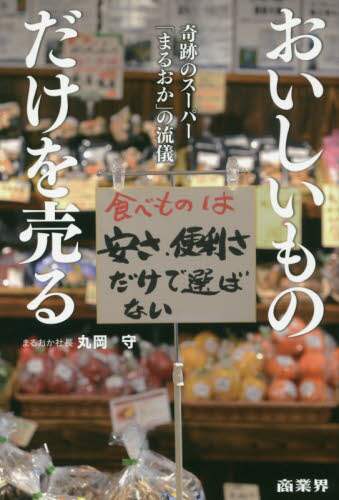 おいしいもの
だけを売る
奇跡のスーパー
「まるおか」の流儀
食べものは
安さ、便利さ
だけで選ば
ない
まるおか社長 丸岡 守
商業界